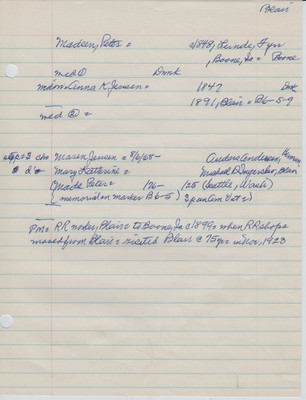 Blair
Madsen, Peter = 1848, Lunde, Fyn
, Boone, Ia = Boone
md ① Dmk
mdom Anna K. Jensen = 1847 Dmk
1891, Blair = B6-5-9
md ② =
step = 3 chn Maren Jensen = 8/6/65- Anders Andersen, Herman
2 d's Mary Katherine = Blair
Made Peter = /26- /25 (Seattle, Wash)
(memorial on marker B6-5) Span Am Vet)
PM = RR, Blair to Boone, Ia c1899, when RR shops
moved from Blair = visited Blair @ 75 yrs in Nov, 1923